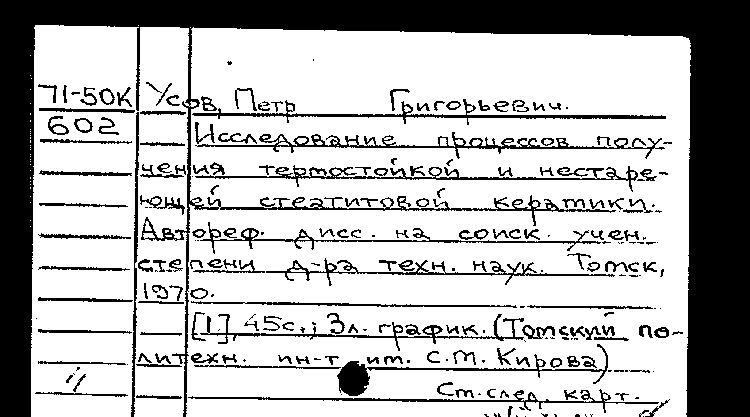 71-50К Усов, Петр Григорьевич.
602 Исследование процессов полу-
чения термостойкой и нестаре-
ющей стеатитовой керамики.
Автореф. дисс. на соиск. учен.
степени д-ра техн. наук. Томск,
1970.
[1], 45с.; 3л. график. (Томский по-
литехн. ин-т им. С.М. Кирова)
См. след. карт.